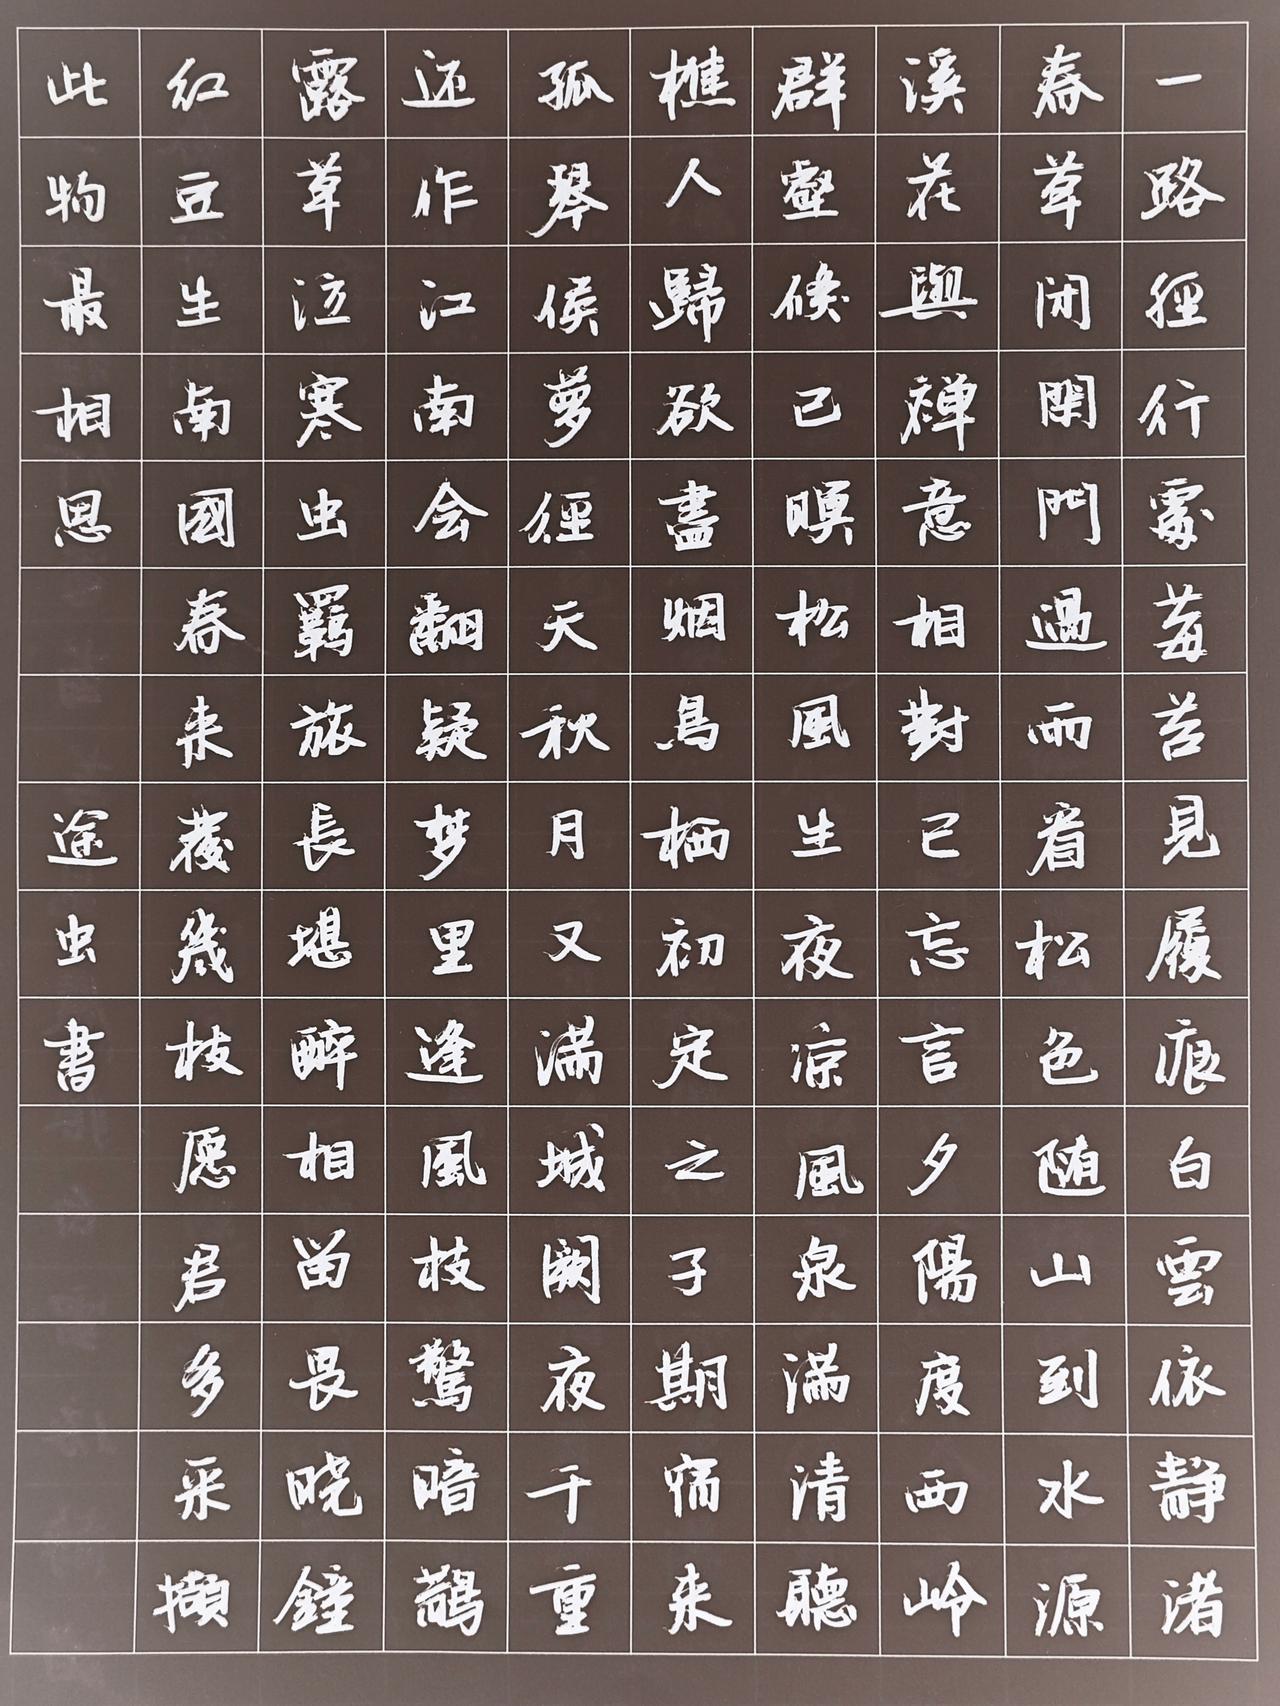 一路徑行處莓苔見履痕白雲依静渚
春草闭閑門過雨看松色随山到水源
溪花與禅意相對已忘言夕陽度西岭
群壑倏已暝松風生夜涼風泉滿清聽
樵人歸欲盡烟鳥栖初定之子期宿来
孤琴侯萝徑天秋月又滿城闕夜千重
还作江南会翻疑梦里逢風枝驚暗鵲
露草泣寒虫羁旅長堪醉相留畏晓鐘
红豆生南國春来發幾枝愿君多采擷
此物最相思
途虫書